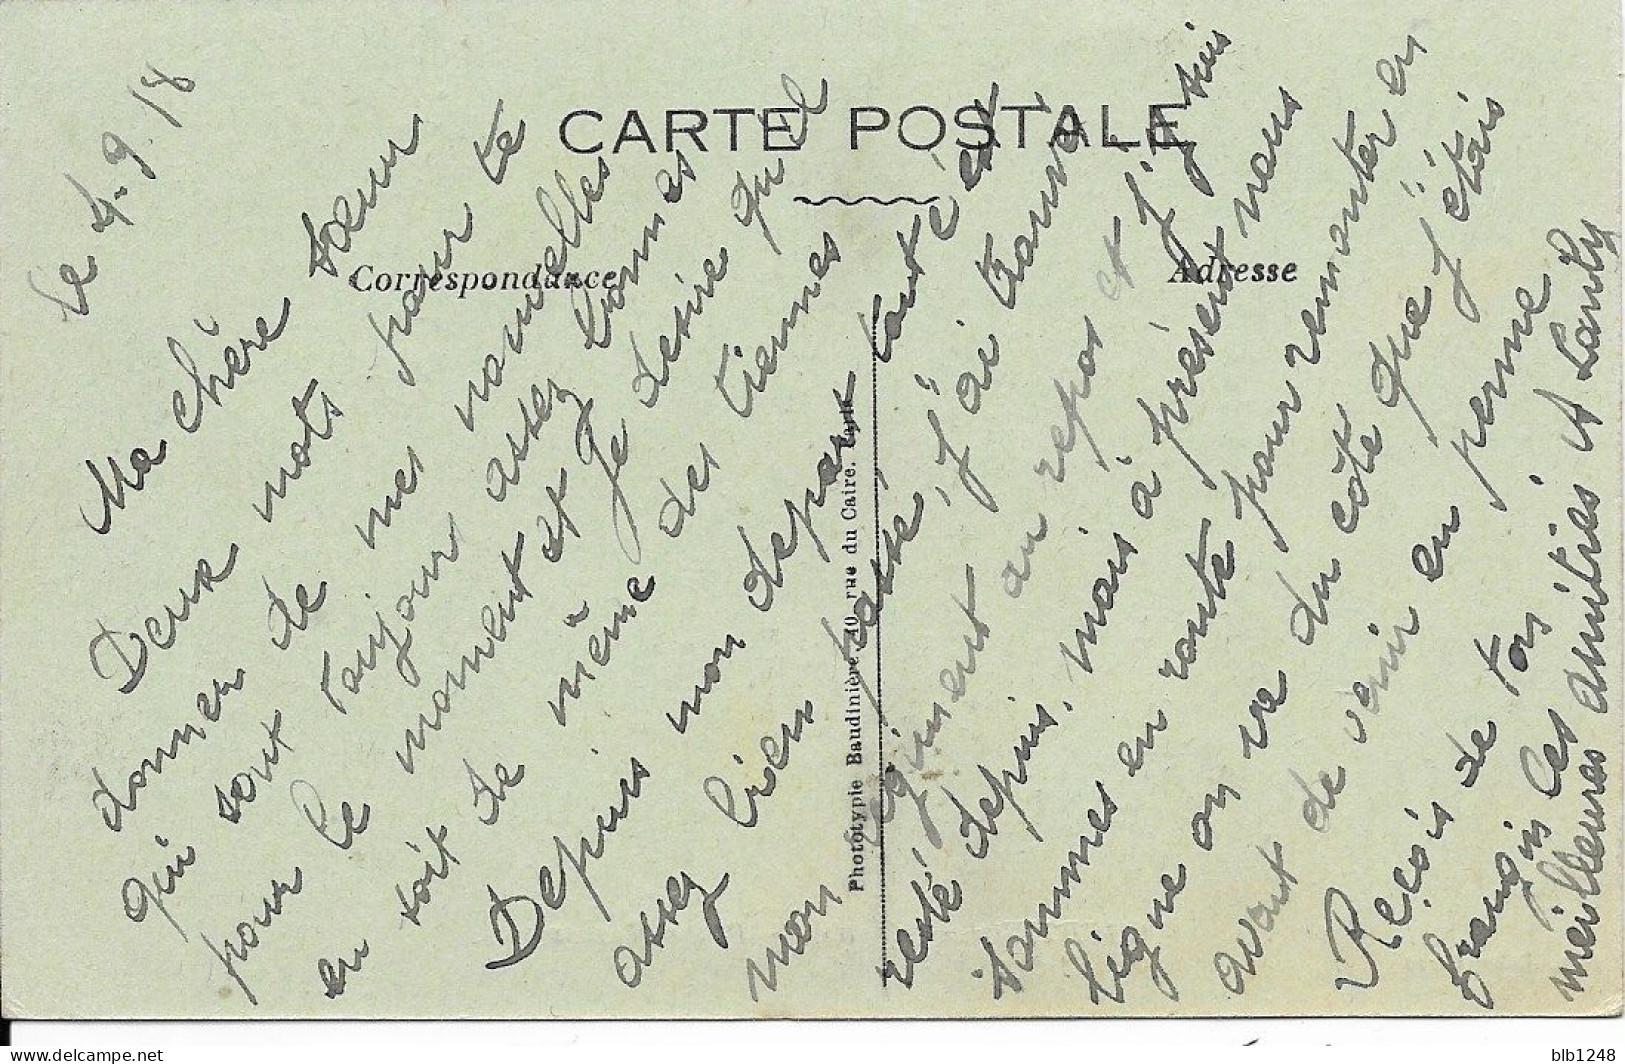 CARTE POSTALE
Correspondance
Adresse
Phototypie Baudinière, 40, rue du Caire. Paris
Le 4.9.18
Ma chère sœur
Deux mots pour te
donner de mes nouvelles
qui sont toujour assez bonnes
pour le moment et je desire qu'il
en soit de même des tiennes
Depuis mon depart tout c'est
assez bien passé, j'ai trouvé
mon regiment au repos et j'y suis
resté depuis, mais à présent nous
sommes en route pour remonter en
ligne on va du côté que j'étais
avant de venir en perme
Reçois de ton
frangin les
meilleures amitiés
blb1248